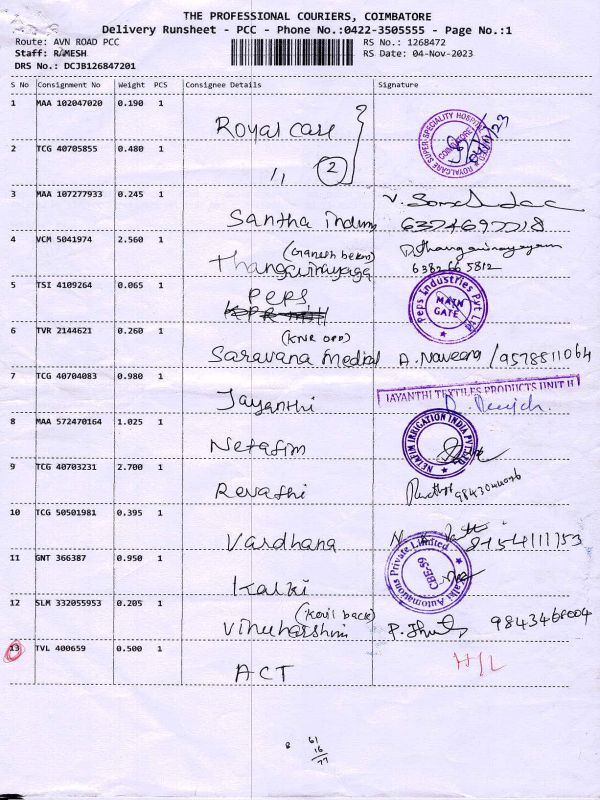 THE PROFESSIONAL COURIERS, COIMBATORE
Delivery Runsheet - PCC - Phone No.:0422-3505555 - Page No.:1
Route: AVN ROAD PCC RS No.: 1268472
Staff: RAMESH RS Date: 04-Nov-2023
DRS No.: DCJB126847201
S No Consignment No Weight PCS Consignee Details Signature
1 MAA 102047020 0.190 1 Royal Care ROYALCARE SUPER-SPECIALITY HOSPITAL COIMBATORE
2 TCG 40705855 0.480 1 〃 2
3 MAA 107277933 0.245 1 Santha indus V.
6374697718
4 VCM 5041974 2.560 1 (Ganesh bekery) Thangavinayaga
6382665812
5 TSI 4109264 0.065 1 PEPS Peps Industries Pvt Ltd MAIN GATE
6 TVR 2144621 0.260 1 (KNR OPP) Saravana Medical A. Naveena / 9578811064
7 TCG 40704083 0.980 1 Jayanthi JAYANTHI TEXTILES PRODUCTS UNIT II
8 MAA 572470164 1.025 1 Netafim NETAFIM IRRIGATION INDIA PVT LTD
9 TCG 40703231 2.700 1 Revathi
10 TCG 50501981 0.395 1 Vardhana 8754111753
11 GNT 366387 0.950 1 Kalki Kalki Automations Private Limited CBE-59
12 SLM 332055953 0.205 1 (Kovil back) Vinuharshini 9843468004
13 TVL 400659 0.500 1 ACT H/L
8 61
16
77